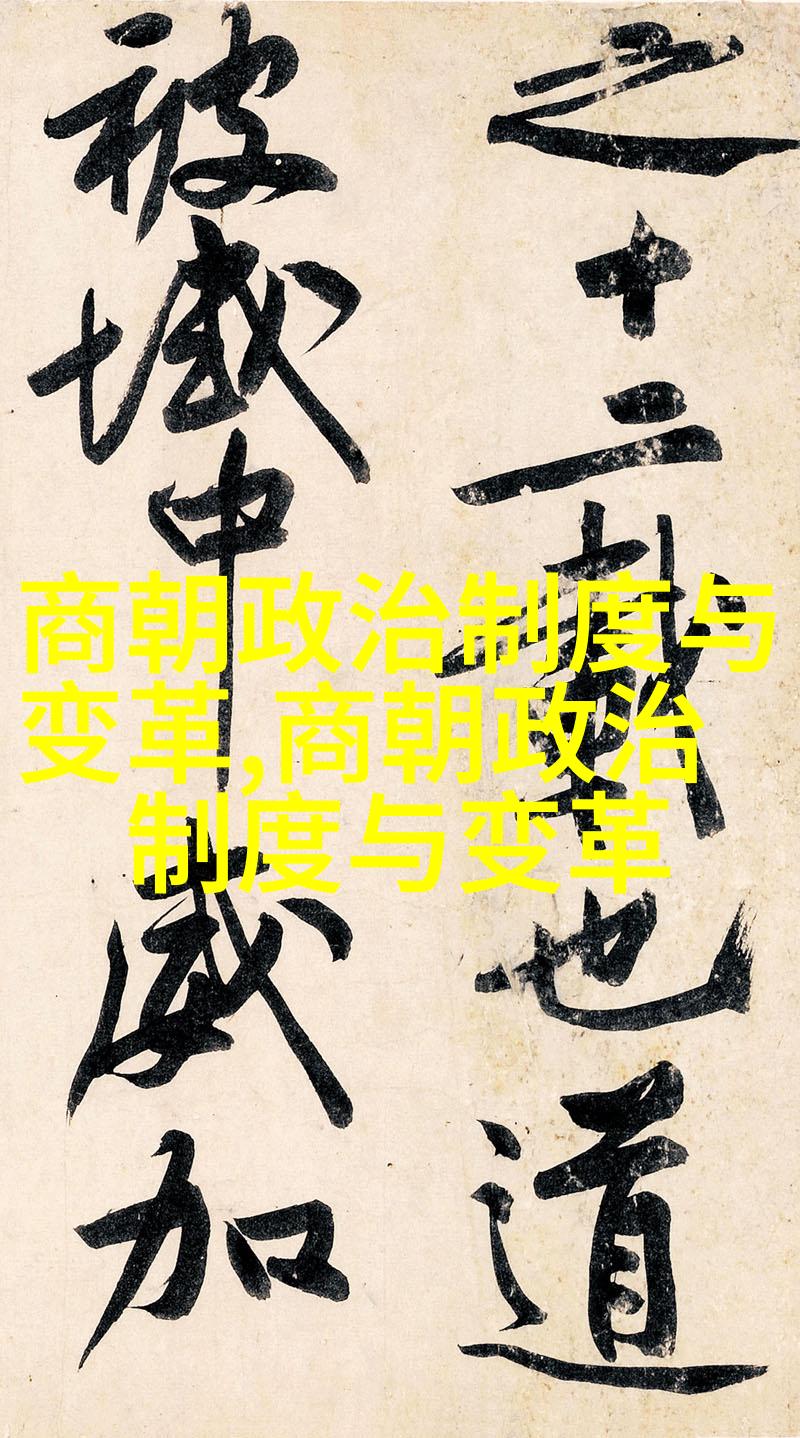 之十二载也道
被域中威加
商朝政治制度与
变革,商朝政治
制度与变革